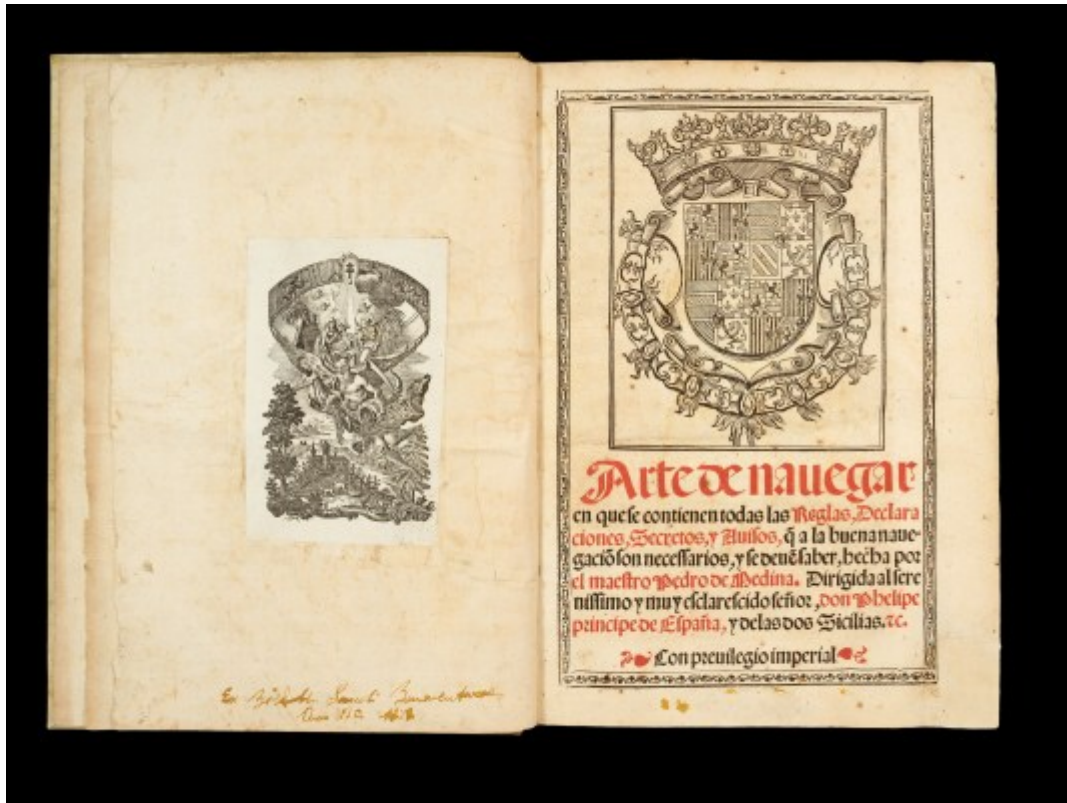 Ex
Arte de nauegar
en que se contienen todas las Reglas, Declara
ciones, Secretos, y Auisos, q̃ a la buena naue-
gaciõ son necessarios, y se deuẽ saber, hecha por
el maestro Pedro de Medina. Dirigida al sere
nissimo y muy esclarescido señor, don Phelipe
principe de España, y delas dos Sicilias. ⁊c.
Con preuilegio imperial